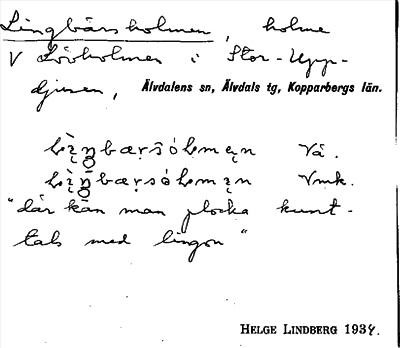 Lingbärsholmen, holme
V Lövholmen i Stor-Upp-
djusen, Älvdalens sn, Älvdals tg, Kopparbergs län.
Vå.
Vmk.
"där kan man plocka kunt-
tals med lingon"
HELGE LINDBERG 1934.